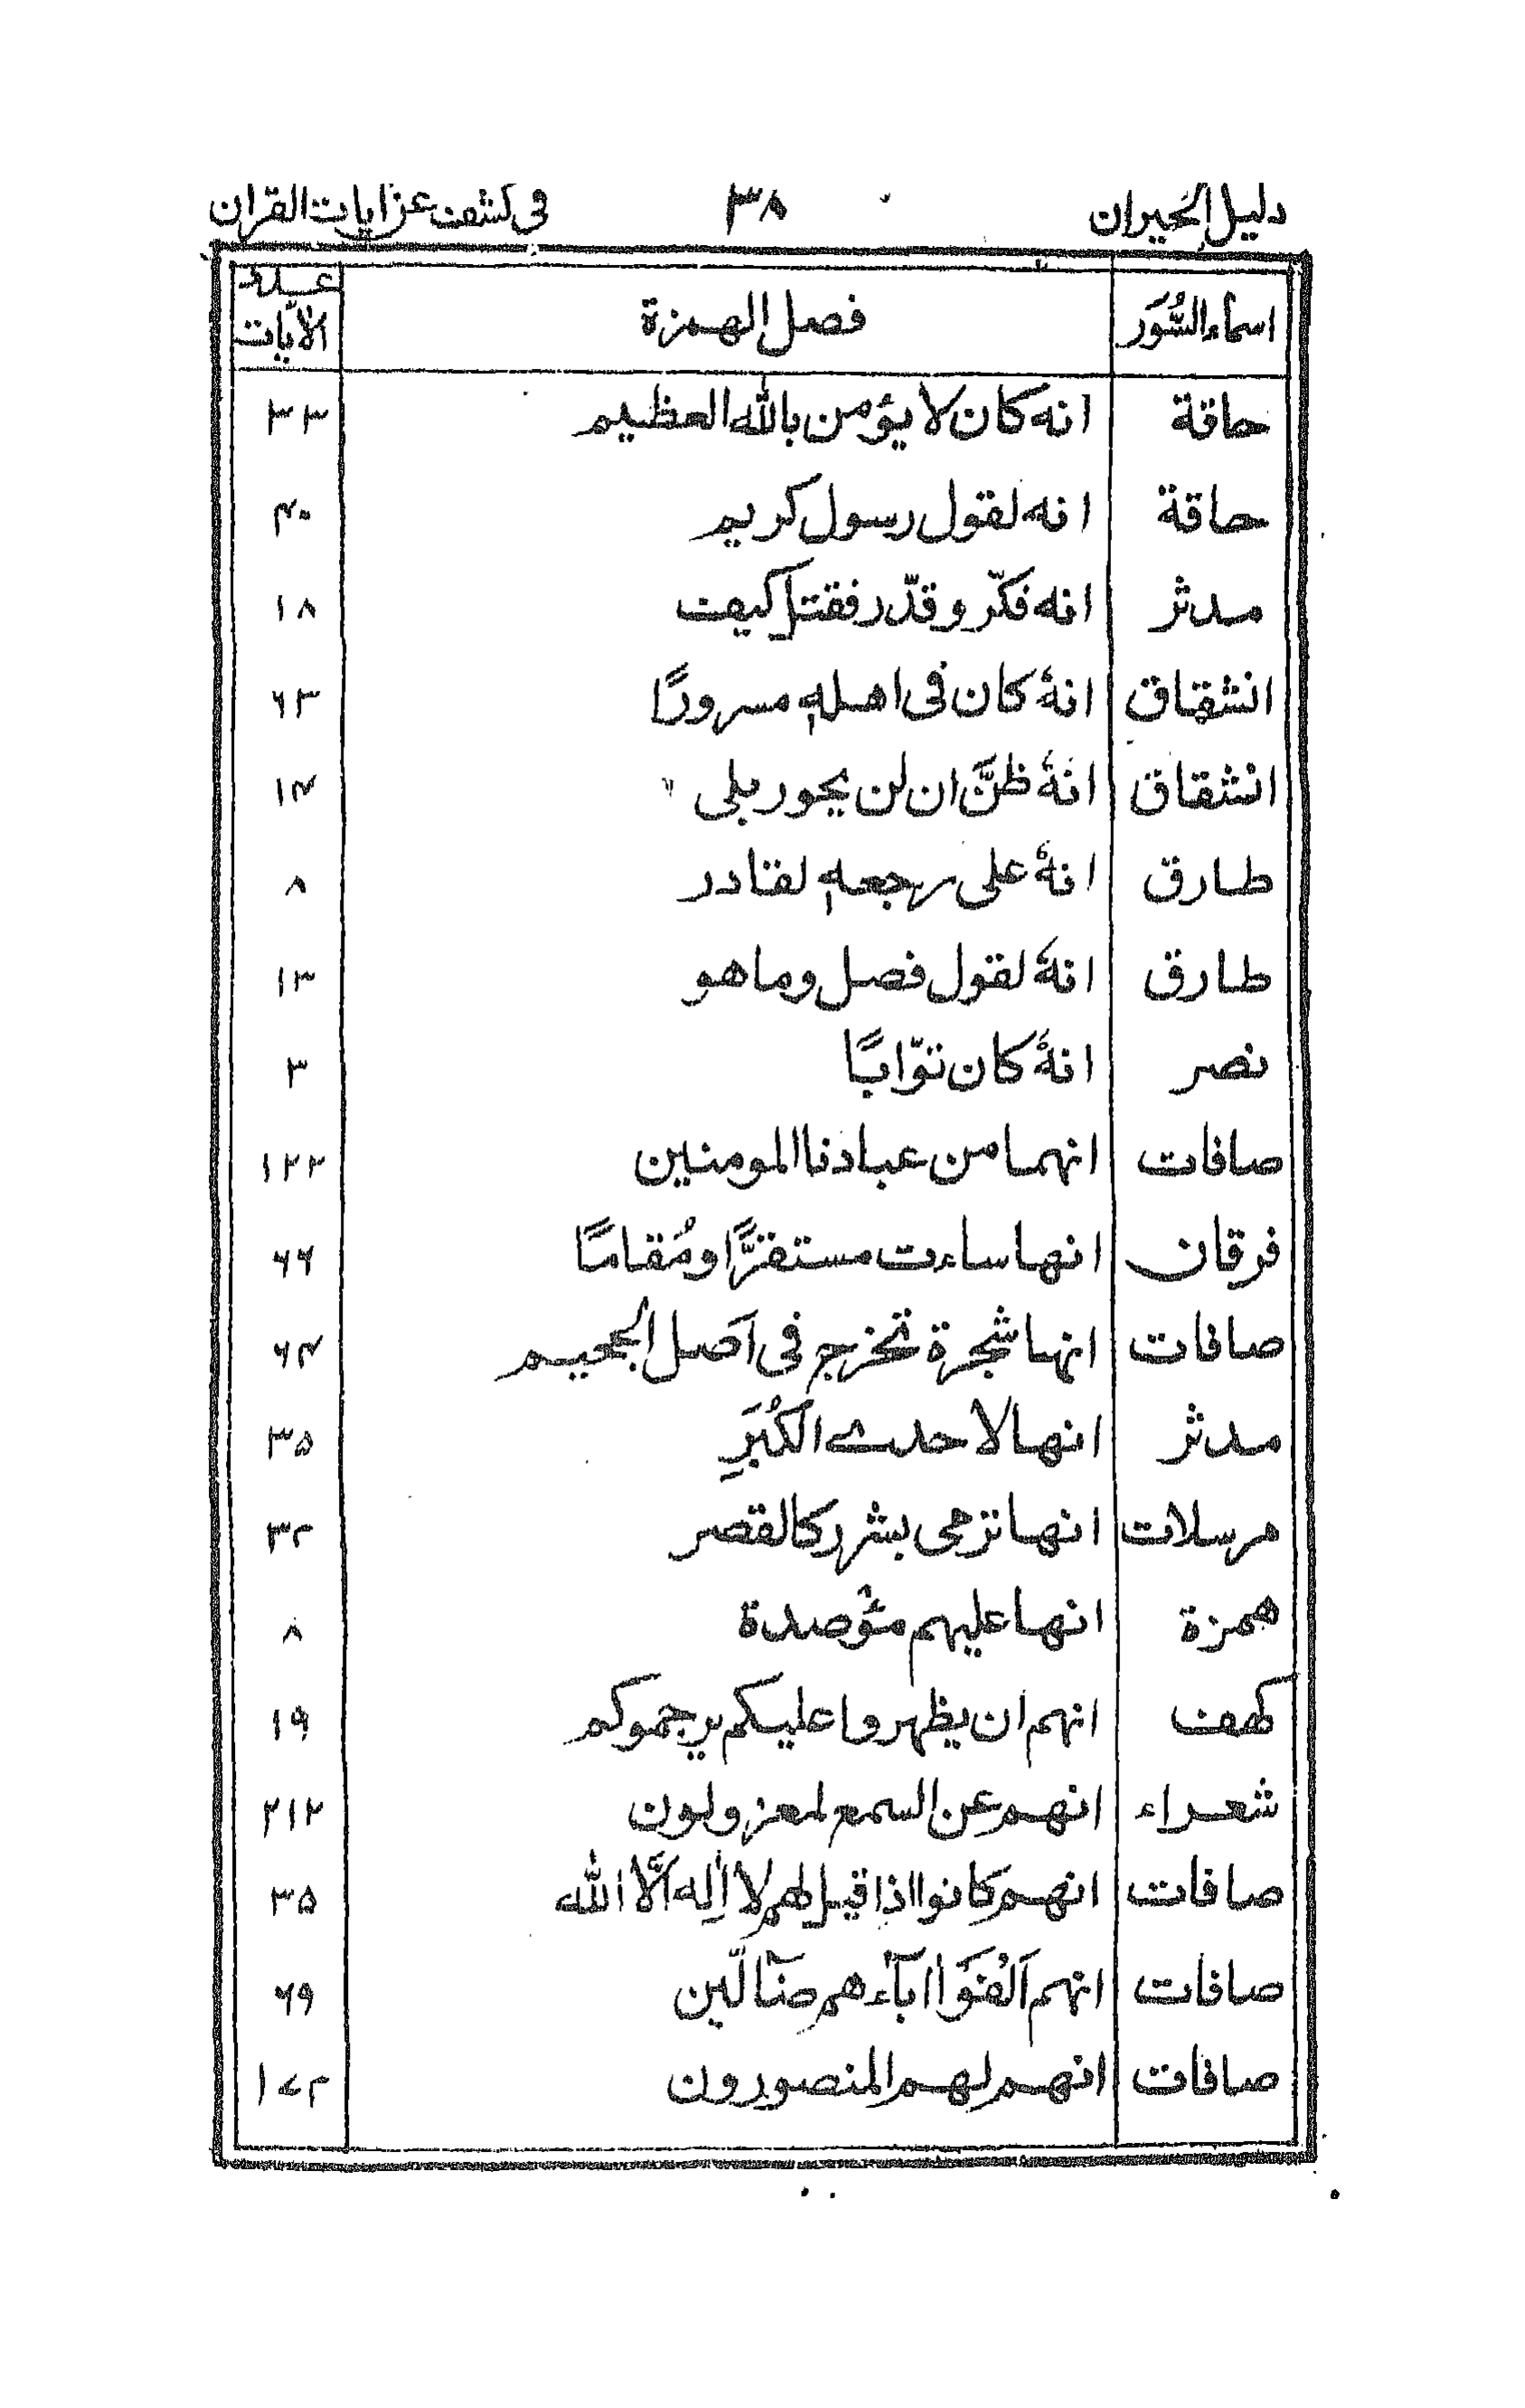 دليل الحَيران ٣٨ فى كشف عن ايات القران
اسماء السُّوَر فصل الهمزة عدد الاٰيات
حاقة انه كان لا يؤمن بالله العظيم ٣٣
حاقة انه لقول رسول كريم ٤٠
مدثر انه فكّر و قدّر فقتل كيف ١٨
انشقاق انهٗ كان فى اهلهٖ مسرورًا ٦٣
انشقاق انهٗ ظنَّ ان لن يحور بلى ١٤
طارق انهٗ على رجعهٖ لقادر ٨
طارق انهٗ لقول فصل وما هو ١٣
نصر انهٗ كان توّابًا ٣
صافات انهما من عبادنا المومنين ١٢٢
فرقان انها ساءت مستقرًّا ومُقامًا ٦٦
صافات انها شجرة تخرج فى اَصل الجحيم ٦٤
مدثر انها لاحدے الكُبَرِ ٣٥
مرسلات انها ترمى بشرر كالقصر ٣٢
همزة انها عليهم مؤصدة ٨
كهف انهم ان يظهروا عليكم يرجموكم ١٩
شعراء انهم عن السمع لمعزولون ٢١٢
صافات انهم كانوا اذا قيل لهم لا اِلٰه اَلَّا الله ٣٥
صافات انهم اَلْفَوْا اٰبآءهم ضآلّين ٦٩
صافات انهم لهم المنصورون ١٧٢